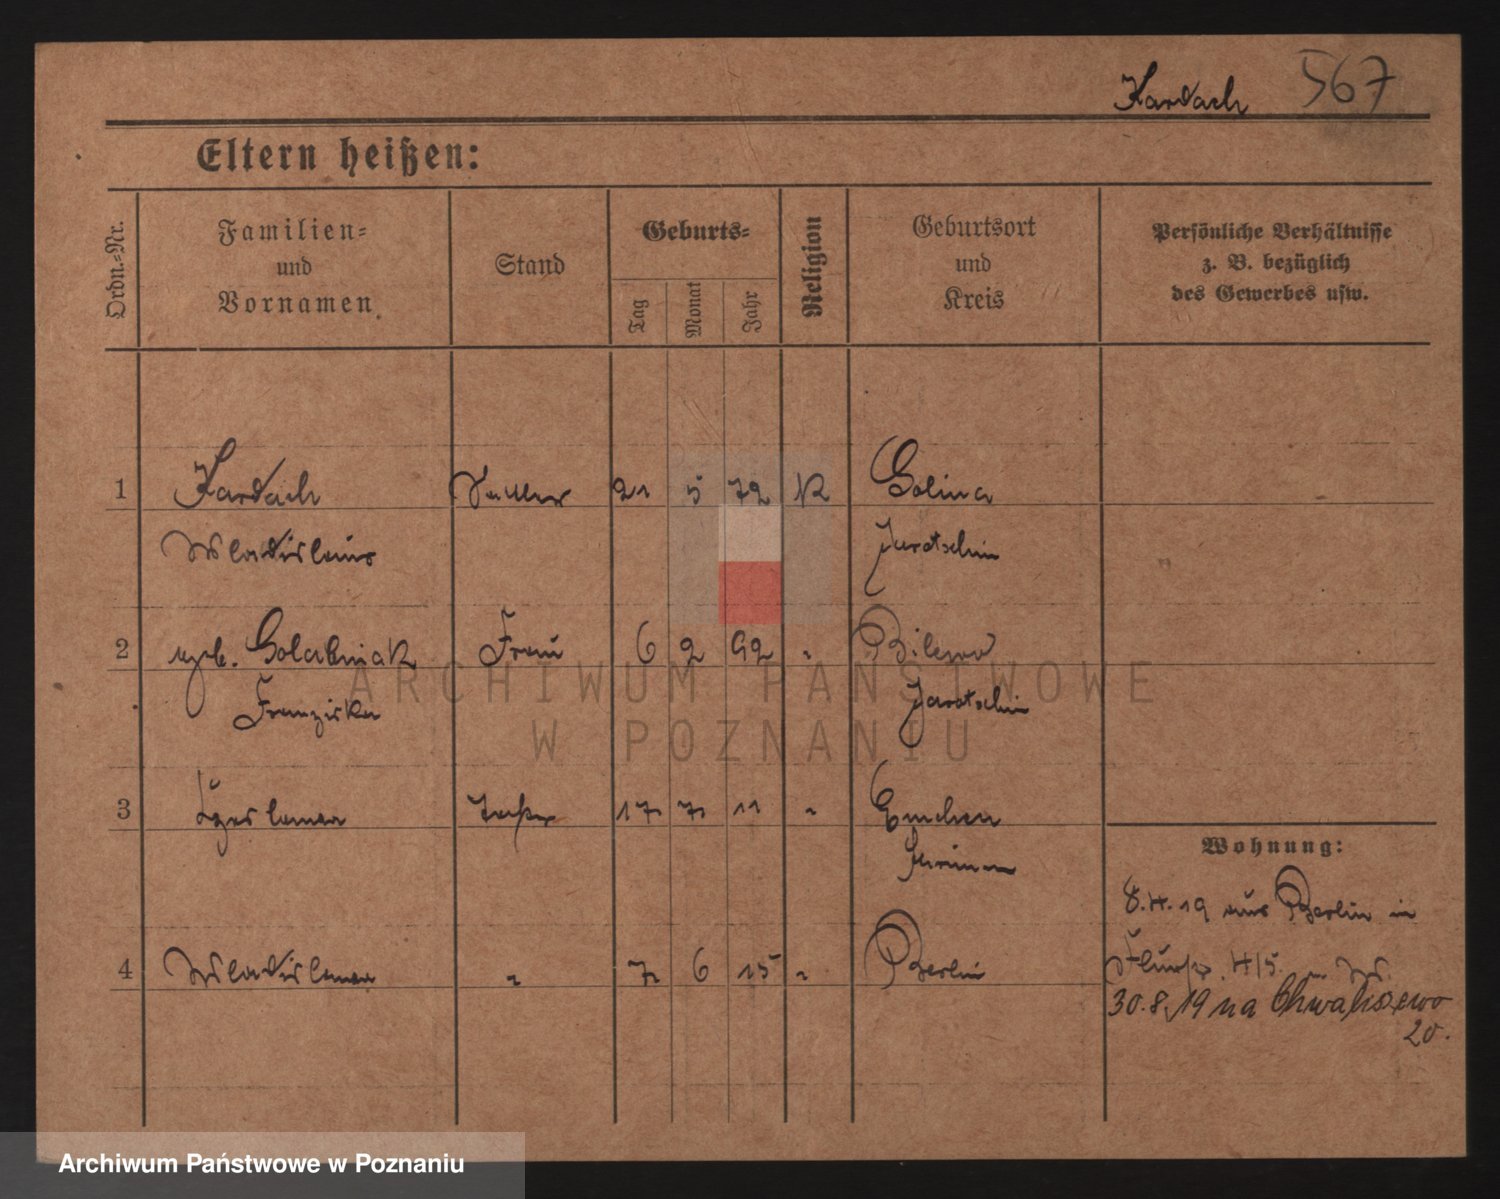 Kardach 567
Eltern heißen:
Ordn.-Nr.
Familien-
und
Vornamen.
Stand
Geburts-
Tag
Monat
Jahr
Religion
Geburtsort
und
Kreis
Persönliche Verhältnisse
z. B. bezüglich
des Gewerbes usw.
1 Kardach Sattler 21 5 72 K Golina
Wladislaus Jarotschin
2 geb. Golabniak Frau 6 2 92 " Bilewo
Franziska Jarotschin
3 Tochter 17 7 11 "
Wohnung:
8.4.19 aus Berlin in
4 Wladislawa " 7 6 15 " Berlin
30.8.19 na Chwaliszewo
20.
ARCHIWUM PAŃSTWOWE
W POZNANIU
Archiwum Państwowe w Poznaniu